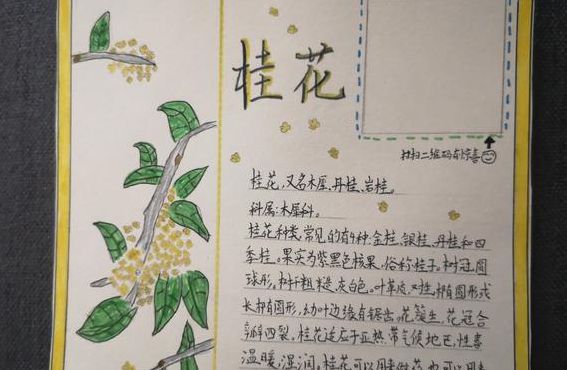 桂花
扫扫二维码有惊喜
桂花,又名木犀、丹桂、岩桂。
科属:木犀科。
桂花种类,常见的有4种:金桂、银桂、丹桂和四
季桂。果实为紫黑色核果,俗称桂子。树冠圆
球形,树干粗糙、灰白色。叶革质,对生,椭圆形或
长椭圆形,幼叶边缘有锯齿。花簇生,花冠合
瓣四裂,桂花适应于亚热带气候地区,性喜
温暖,湿润。桂花可以用来做花,也可以用来